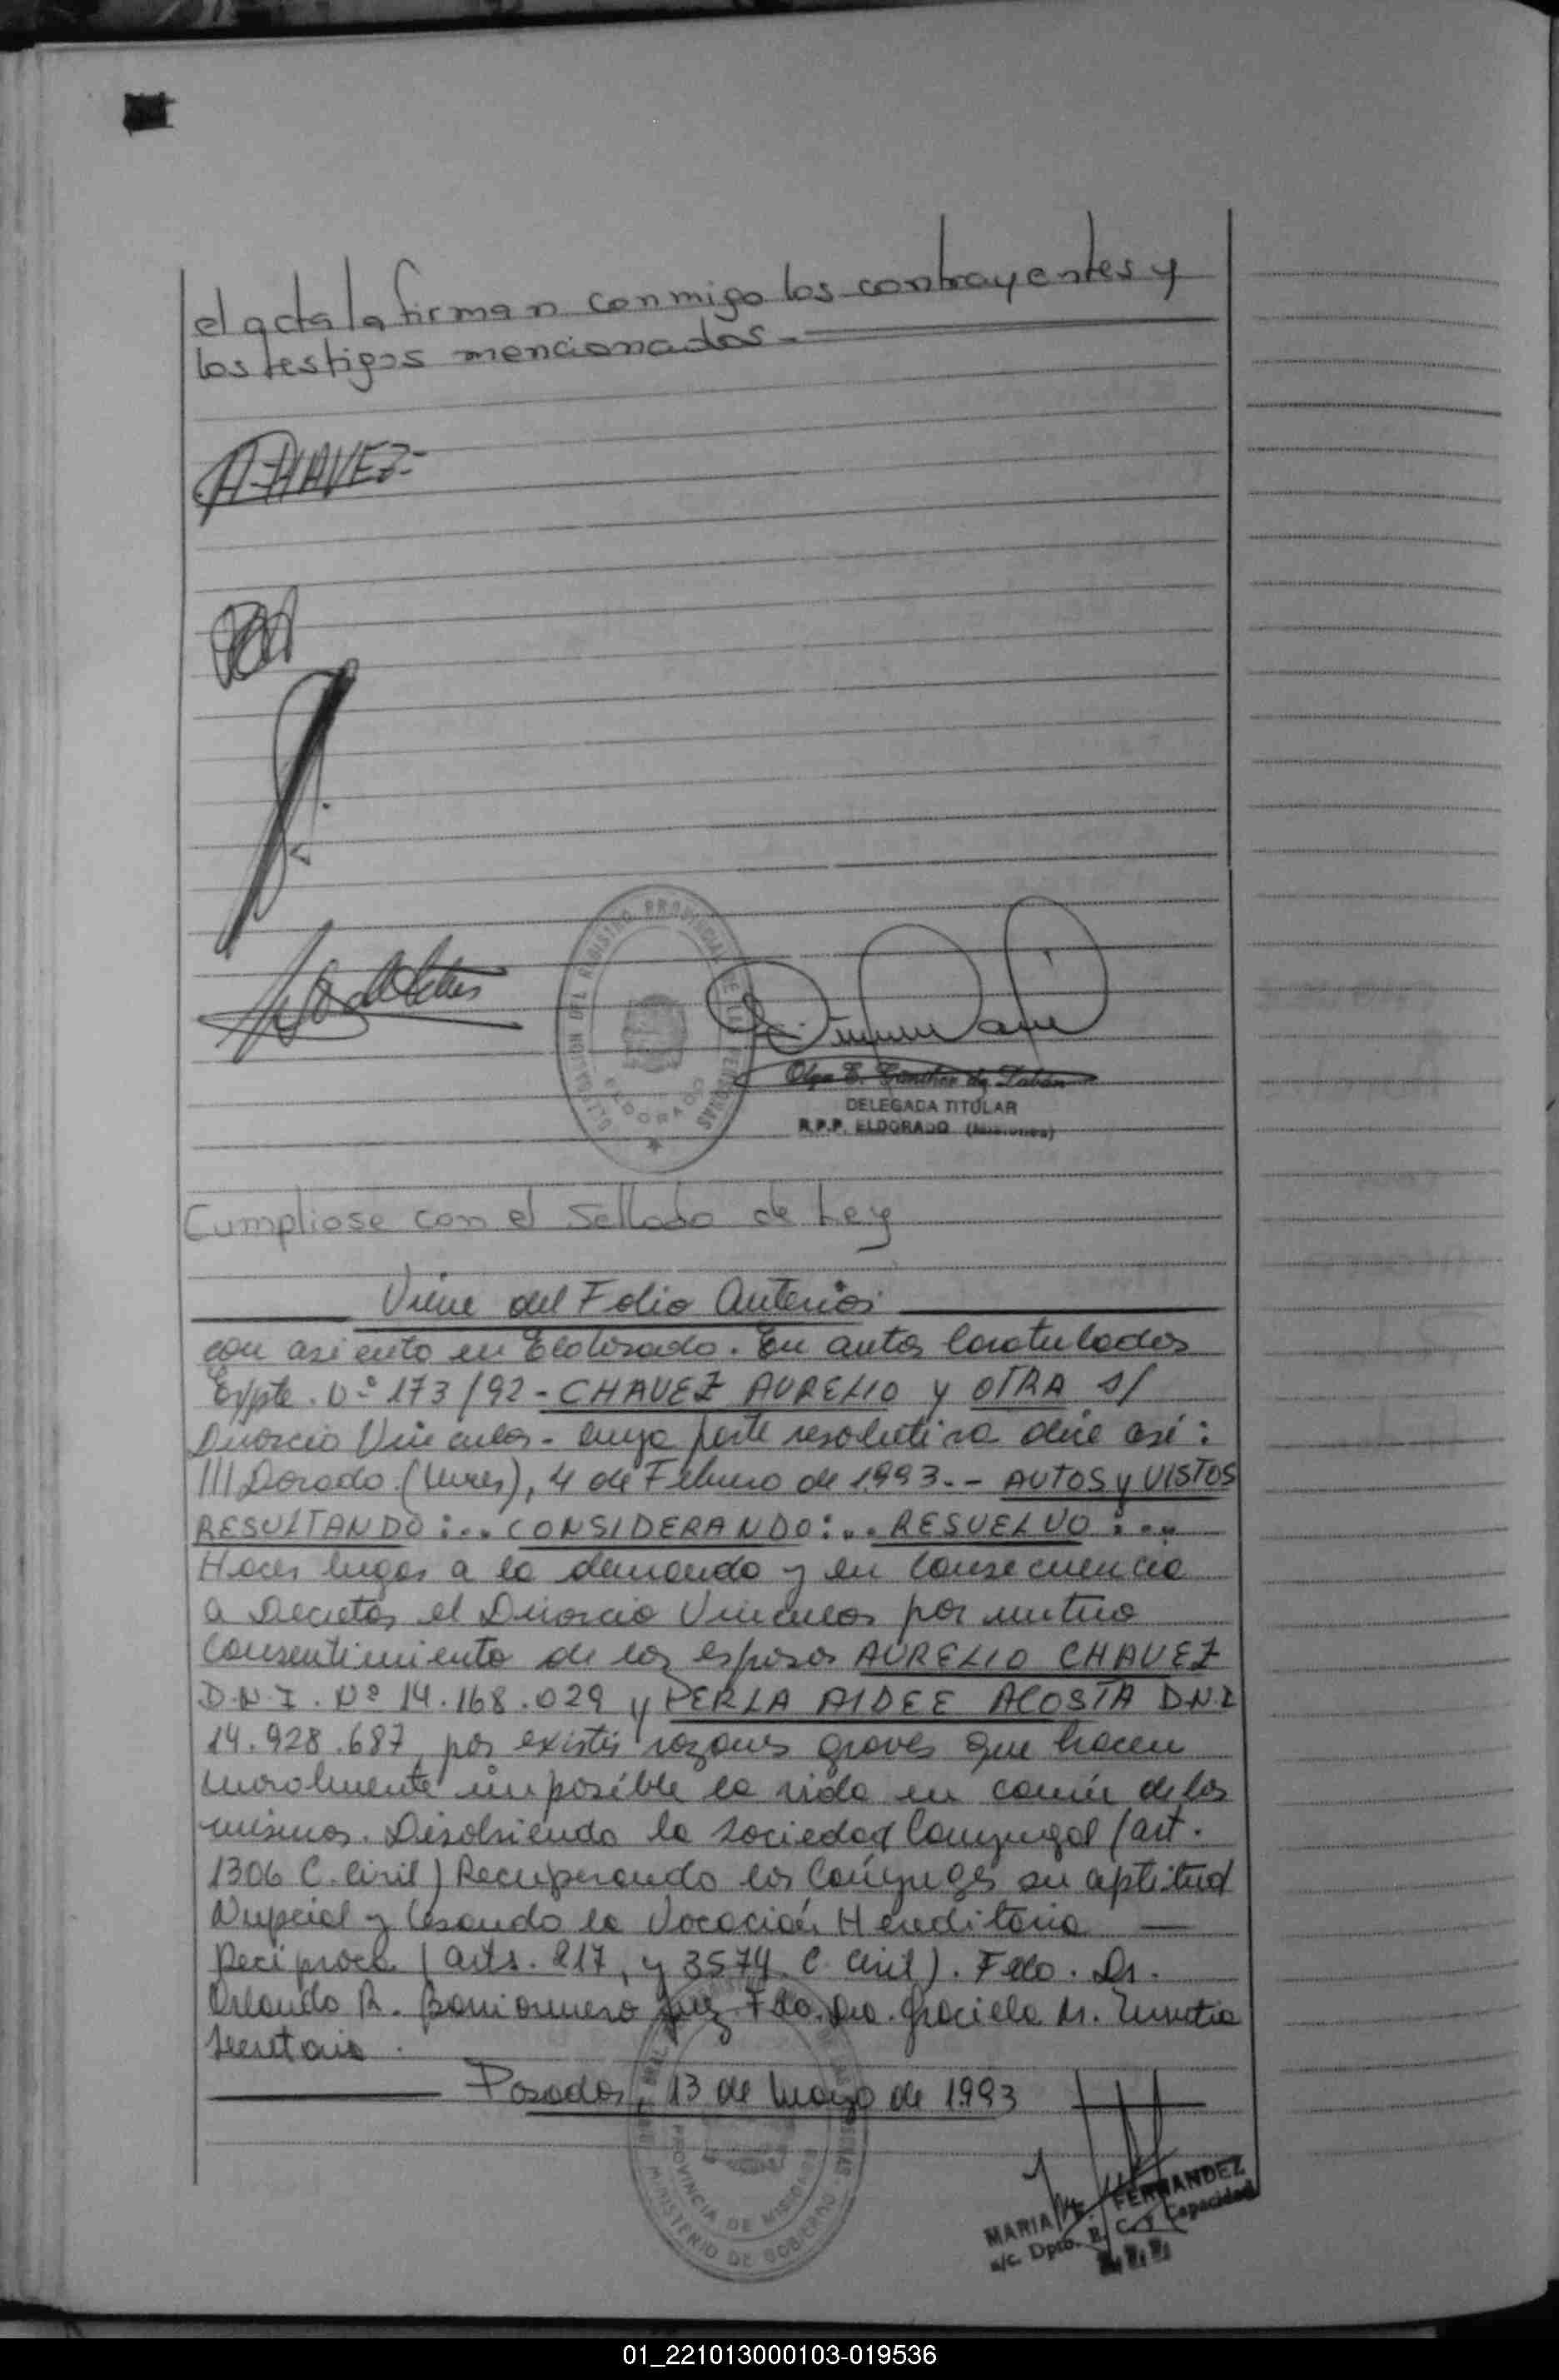 el acta la firman conmigo los contrayentes y
los testigos mencionados.-
A. CHAVEZ-
DELEGACION DEL REGISTRO PROVINCIAL DE LAS PERSONAS
ELDORADO
Olga E. Sanchez de Labán
DELEGADA TITULAR
R.P.P. ELDORADO (Misiones)
Cumpliose con el Sellado de Ley
Viene del Folio Anterior
con asiento en Eldorado. En autos Caratulados
Expte. Nº 173/92 - CHAVEZ AURELIO y OTRA s/
Divorcio Vincular - cuya parte resolutiva dice así:
///Dorado (Mnes), 4 de Febrero de 1993.- AUTOS y VISTOS
RESULTANDO:.. CONSIDERANDO:.. RESUELVO:...
Hacer lugar a la demanda y en Consecuencia
a Decretar el Divorcio Vincular por mutuo
Consentimiento de los esposos AURELIO CHAVEZ
D.N.I. Nº 14.168.029 y PERLA AIDEE ACOSTA D.N.I
14.928.687, por existir razones graves que hacen
moralmente imposible la vida en común de los
mismos. Disolviendo la Sociedad Conyugal (art.
1306 C. Civil) Recuperando los Cónyuges su aptitud
Nupcial y Cesando la Vocación Hereditaria
Reciproca (arts. 217, y 3574 C. Civil). Fdo. Dr.
Orlando R. Juez. Fdo. Dra. Graciela M.
Secretaria.
Posadas, 13 de Mayo de 1993
PROVINCIA DE MISIONES
MINISTERIO DE GOBIERNO
MARIA E. FERNANDEZ
a/c. Dpto. R. C. y Capacidad
01_221013000103-019536